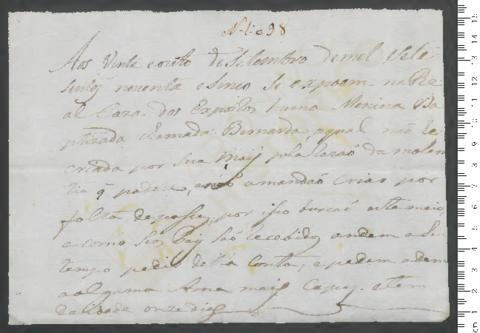 N.1098
Aos Vinte e outo de Setembro de mil Sete
sentos noventa e Sinco Se expoem na Re
al Caza dos Expostos huma Menina Ba
ptizada chamada Bernarda, a qual não he
criada por sua May pela Razaõ da molés
tia q padese, e naõ a mandaõ criar por
falta de posses, por isso buscaõ este meio,
e como seos Pay saõ conhecidos andem a seu
tempo pedir della conta, e pedem a dem
a alguma Ama mais Capaz. e tem
de idade onze dias